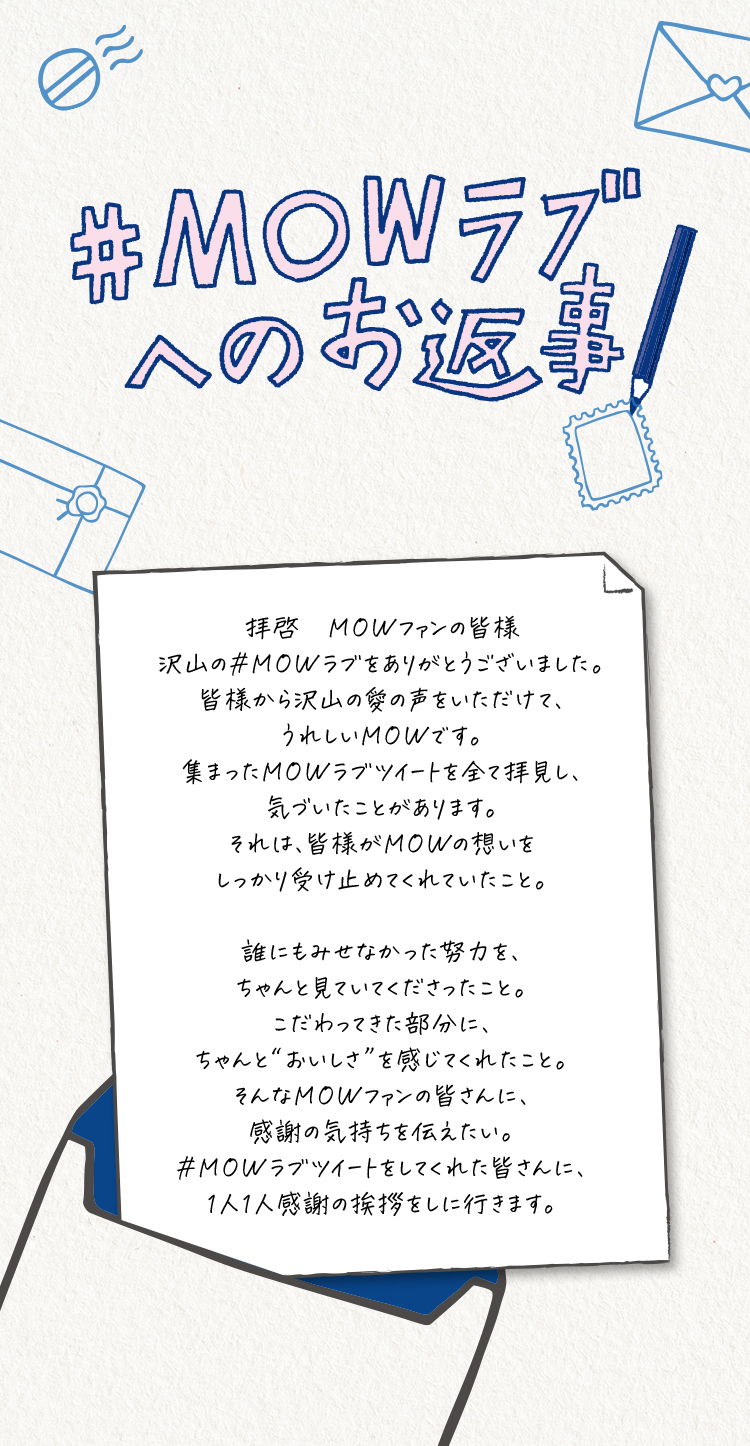 #MOWラブ
へのお返事
拝啓　MOWファンの皆様
沢山の#MOWラブをありがとうございました。
皆様から沢山の愛の声をいただけて、
うれしいMOWです。
集まったMOWラブツイートを全て拝見し、
気づいたことがあります。
それは、皆様がMOWの想いを
しっかり受け止めてくれていたこと。
誰にもみせなかった努力を、
ちゃんと見ていてくださったこと。
こだわってきた部分に、
ちゃんと“おいしさ”を感じてくれたこと。
そんなMOWファンの皆さんに、
感謝の気持ちを伝えたい。
#MOWラブツイートをしてくれた皆さんに、
1人1人感謝の挨拶をしに行きます。